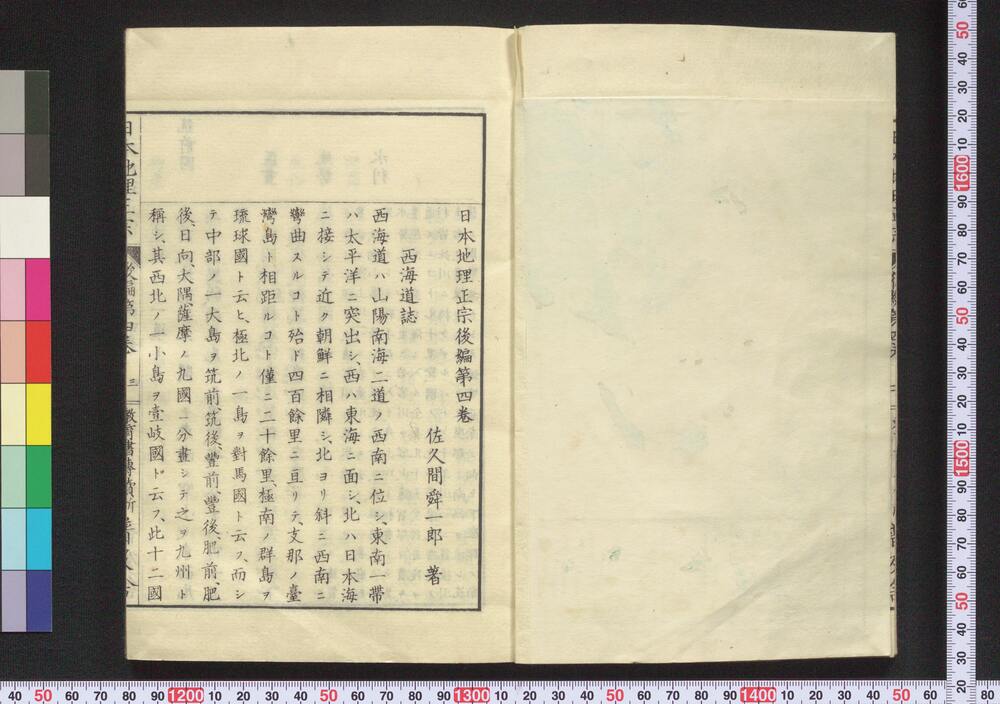 日本地理正宗後編第四巻
佐久間舜一郎 著
西海道誌
西海道ハ山陽南海二道ノ西南ニ位シ、東南一帶
ハ太平洋ニ突出シ、西ハ東海ニ面シ、北ハ日本海
ニ接シテ近ク朝鮮ニ相隣シ、北ヨリ斜ニ西南ニ
彎曲スルコト殆ド四百餘里ニ亘リテ、支那ノ臺
灣島ト相距ルコト僅ニ二十餘里、極南ノ群島ヲ
琉球國ト云ヒ、極北ノ一島ヲ對馬國ト云フ、而シ
テ中部ノ一大島ヲ筑前、筑後、豐前、豐後、肥前、肥
後、日向、大隅、薩摩ノ九國ニ分畫シテ之ヲ九州ト
稱シ、其西北ノ一小島ヲ壹岐國ト云フ、此十二國
日本地理正宗
後編第四巻
三